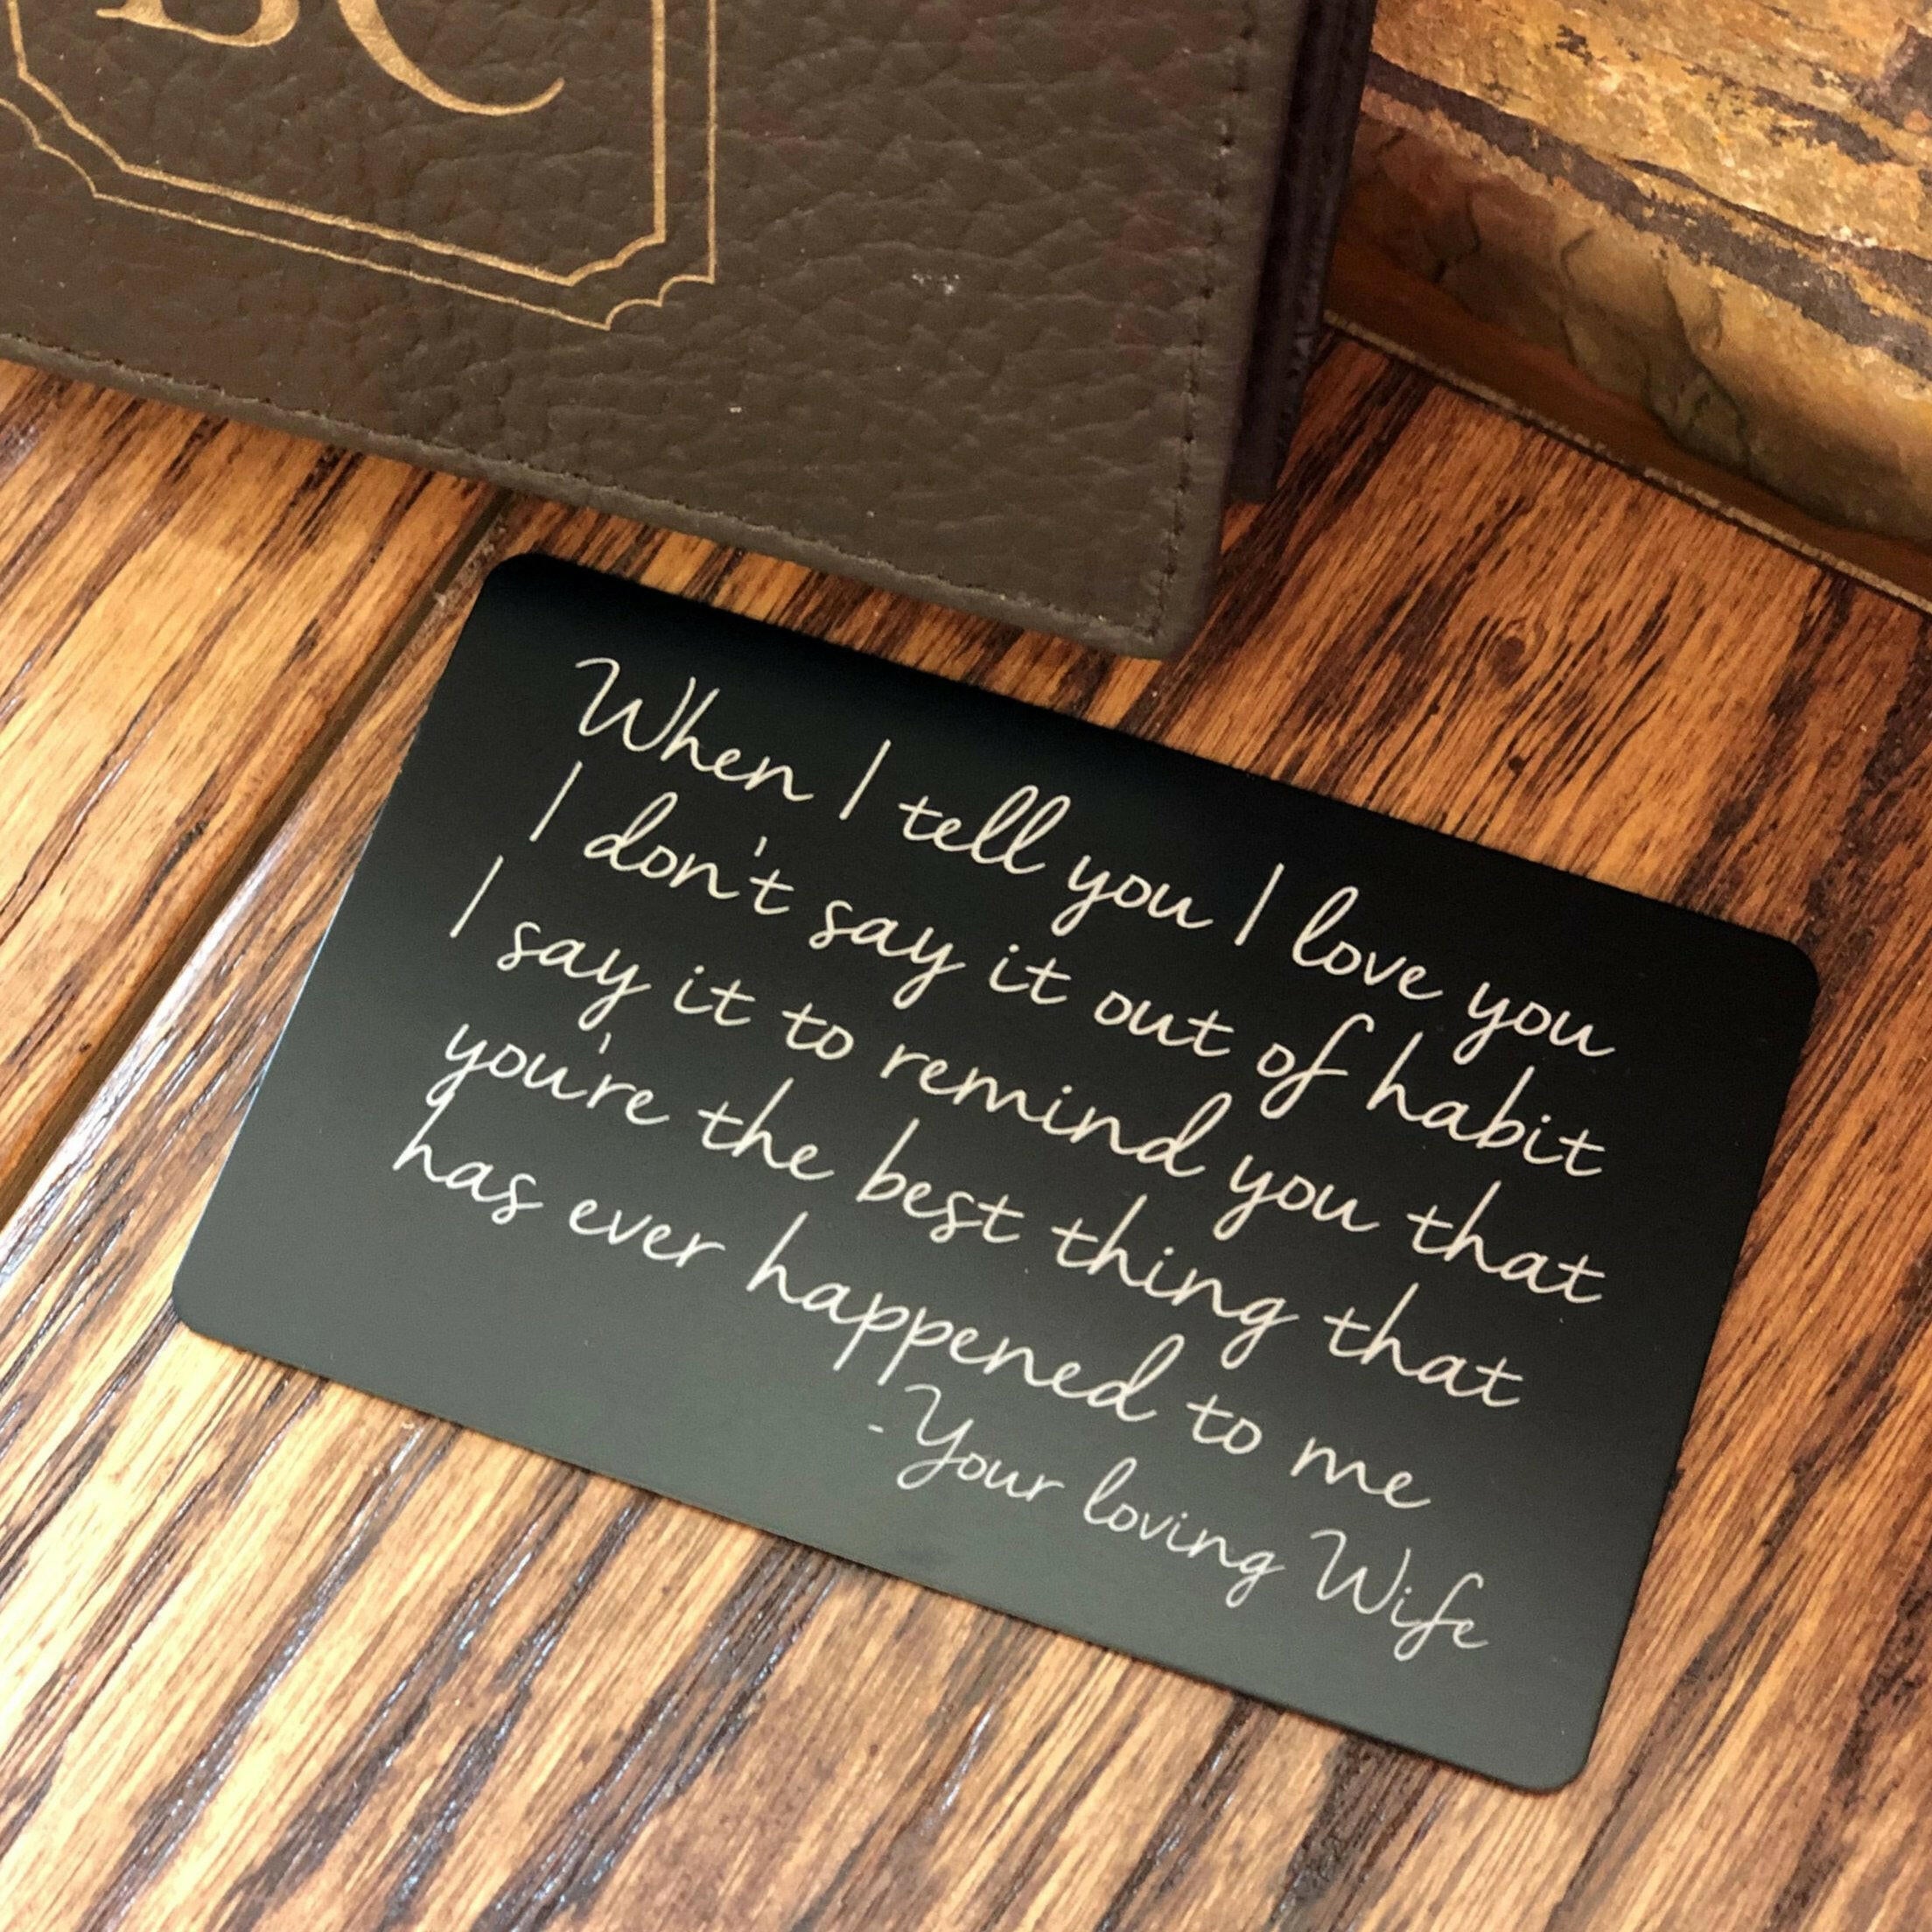 When I tell you I love you
I don't say it out of habit
I say it to remind you that
you're the best thing that
has ever happened to me
-Your loving Wife